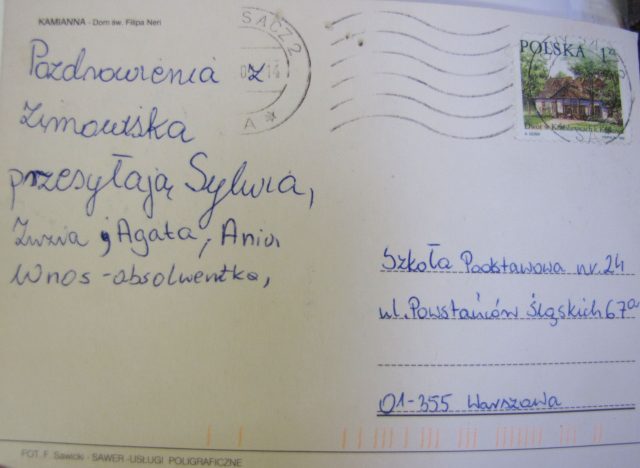 KAMIANNA - Dom św. Filipa Neri
SĄCZ 2
POLSKA
Pozdrowienia z
zimowiska
przesyłają Sylwia,
Zuzia, Agata, Ania
Wnos - absolwentka,
Szkoła Podstawowa nr. 24
ul. Powstańców Śląskich 67a
01-355 Warszawa
FOT. F. Sawicki - SAWER - USŁUGI POLIGRAFICZNE